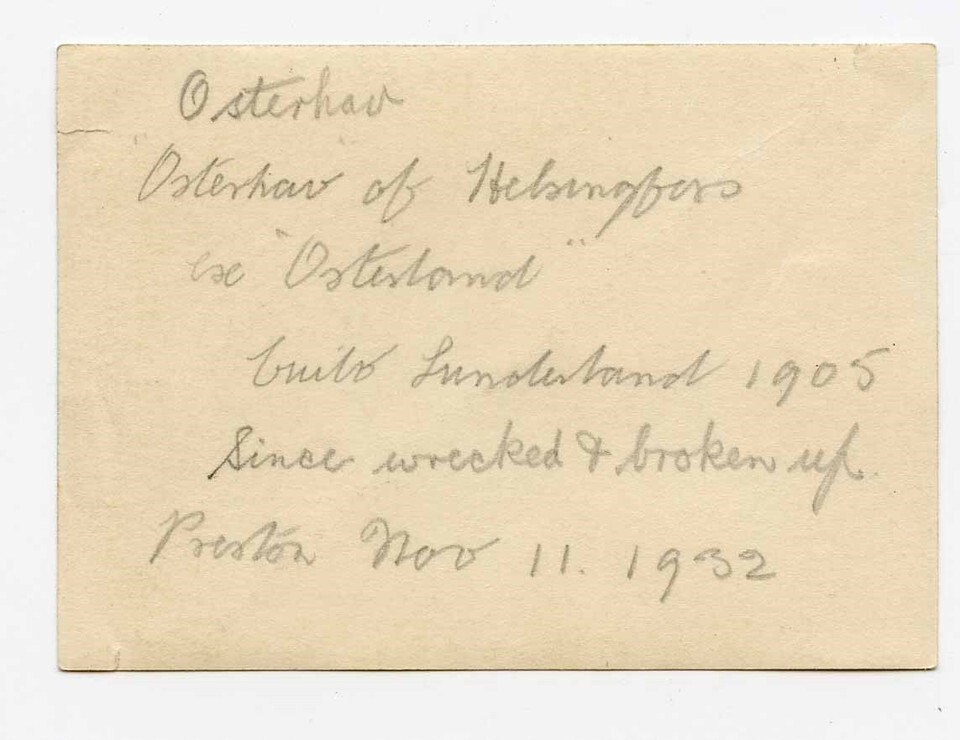 Osterhav
"Osterhav" of Helsingfors
ex "Osterland"
built Sunderland 1905
Since wrecked & broken up.
Preston Nov 11. 1932